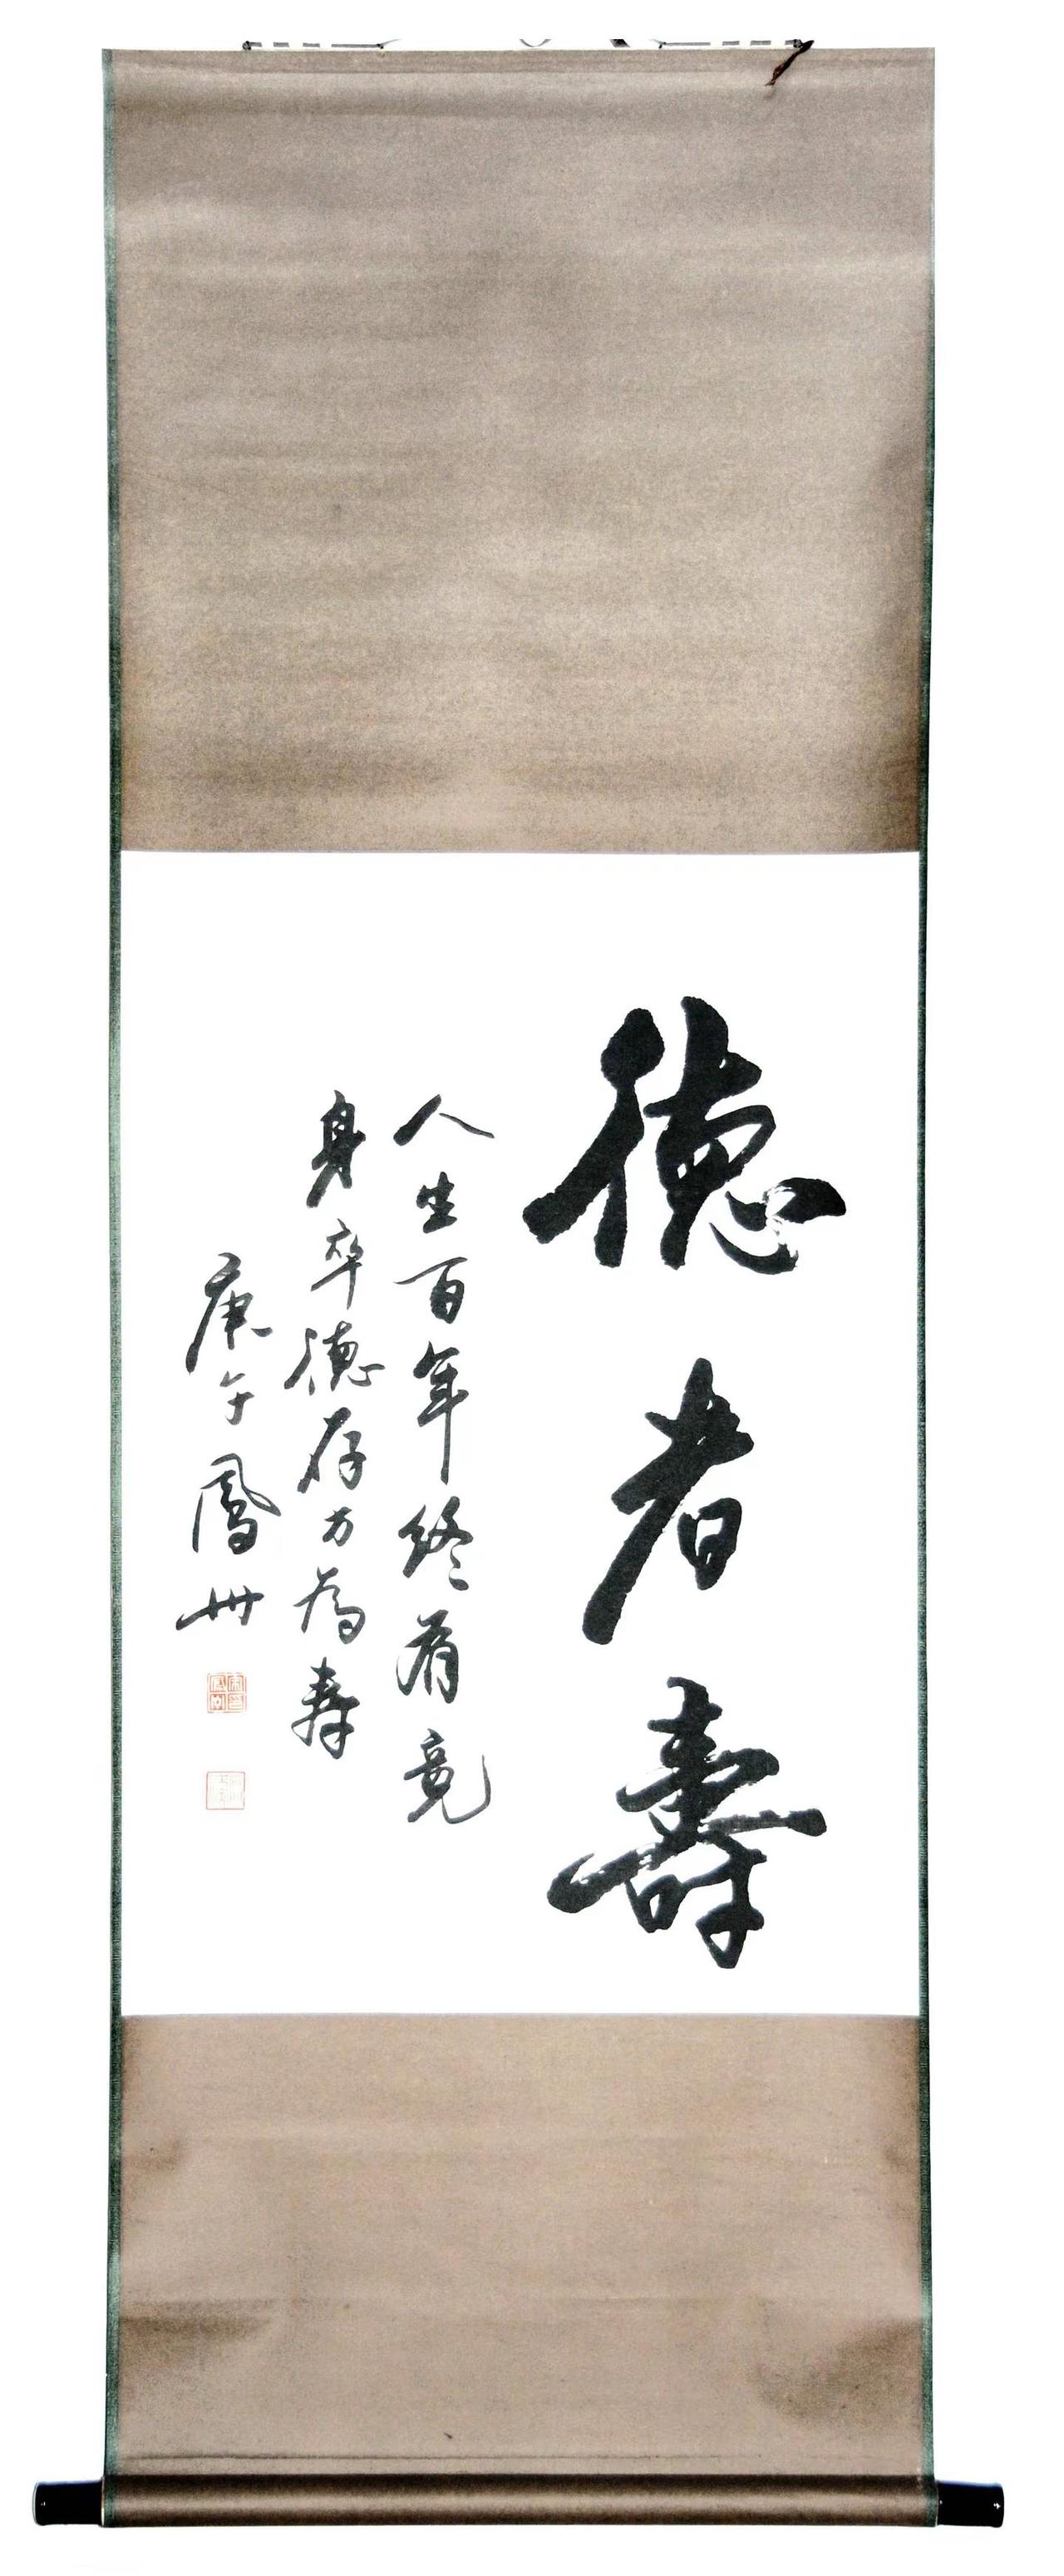 德者壽
人生百年終有竟
身卒德存方為壽
庚午鳳州